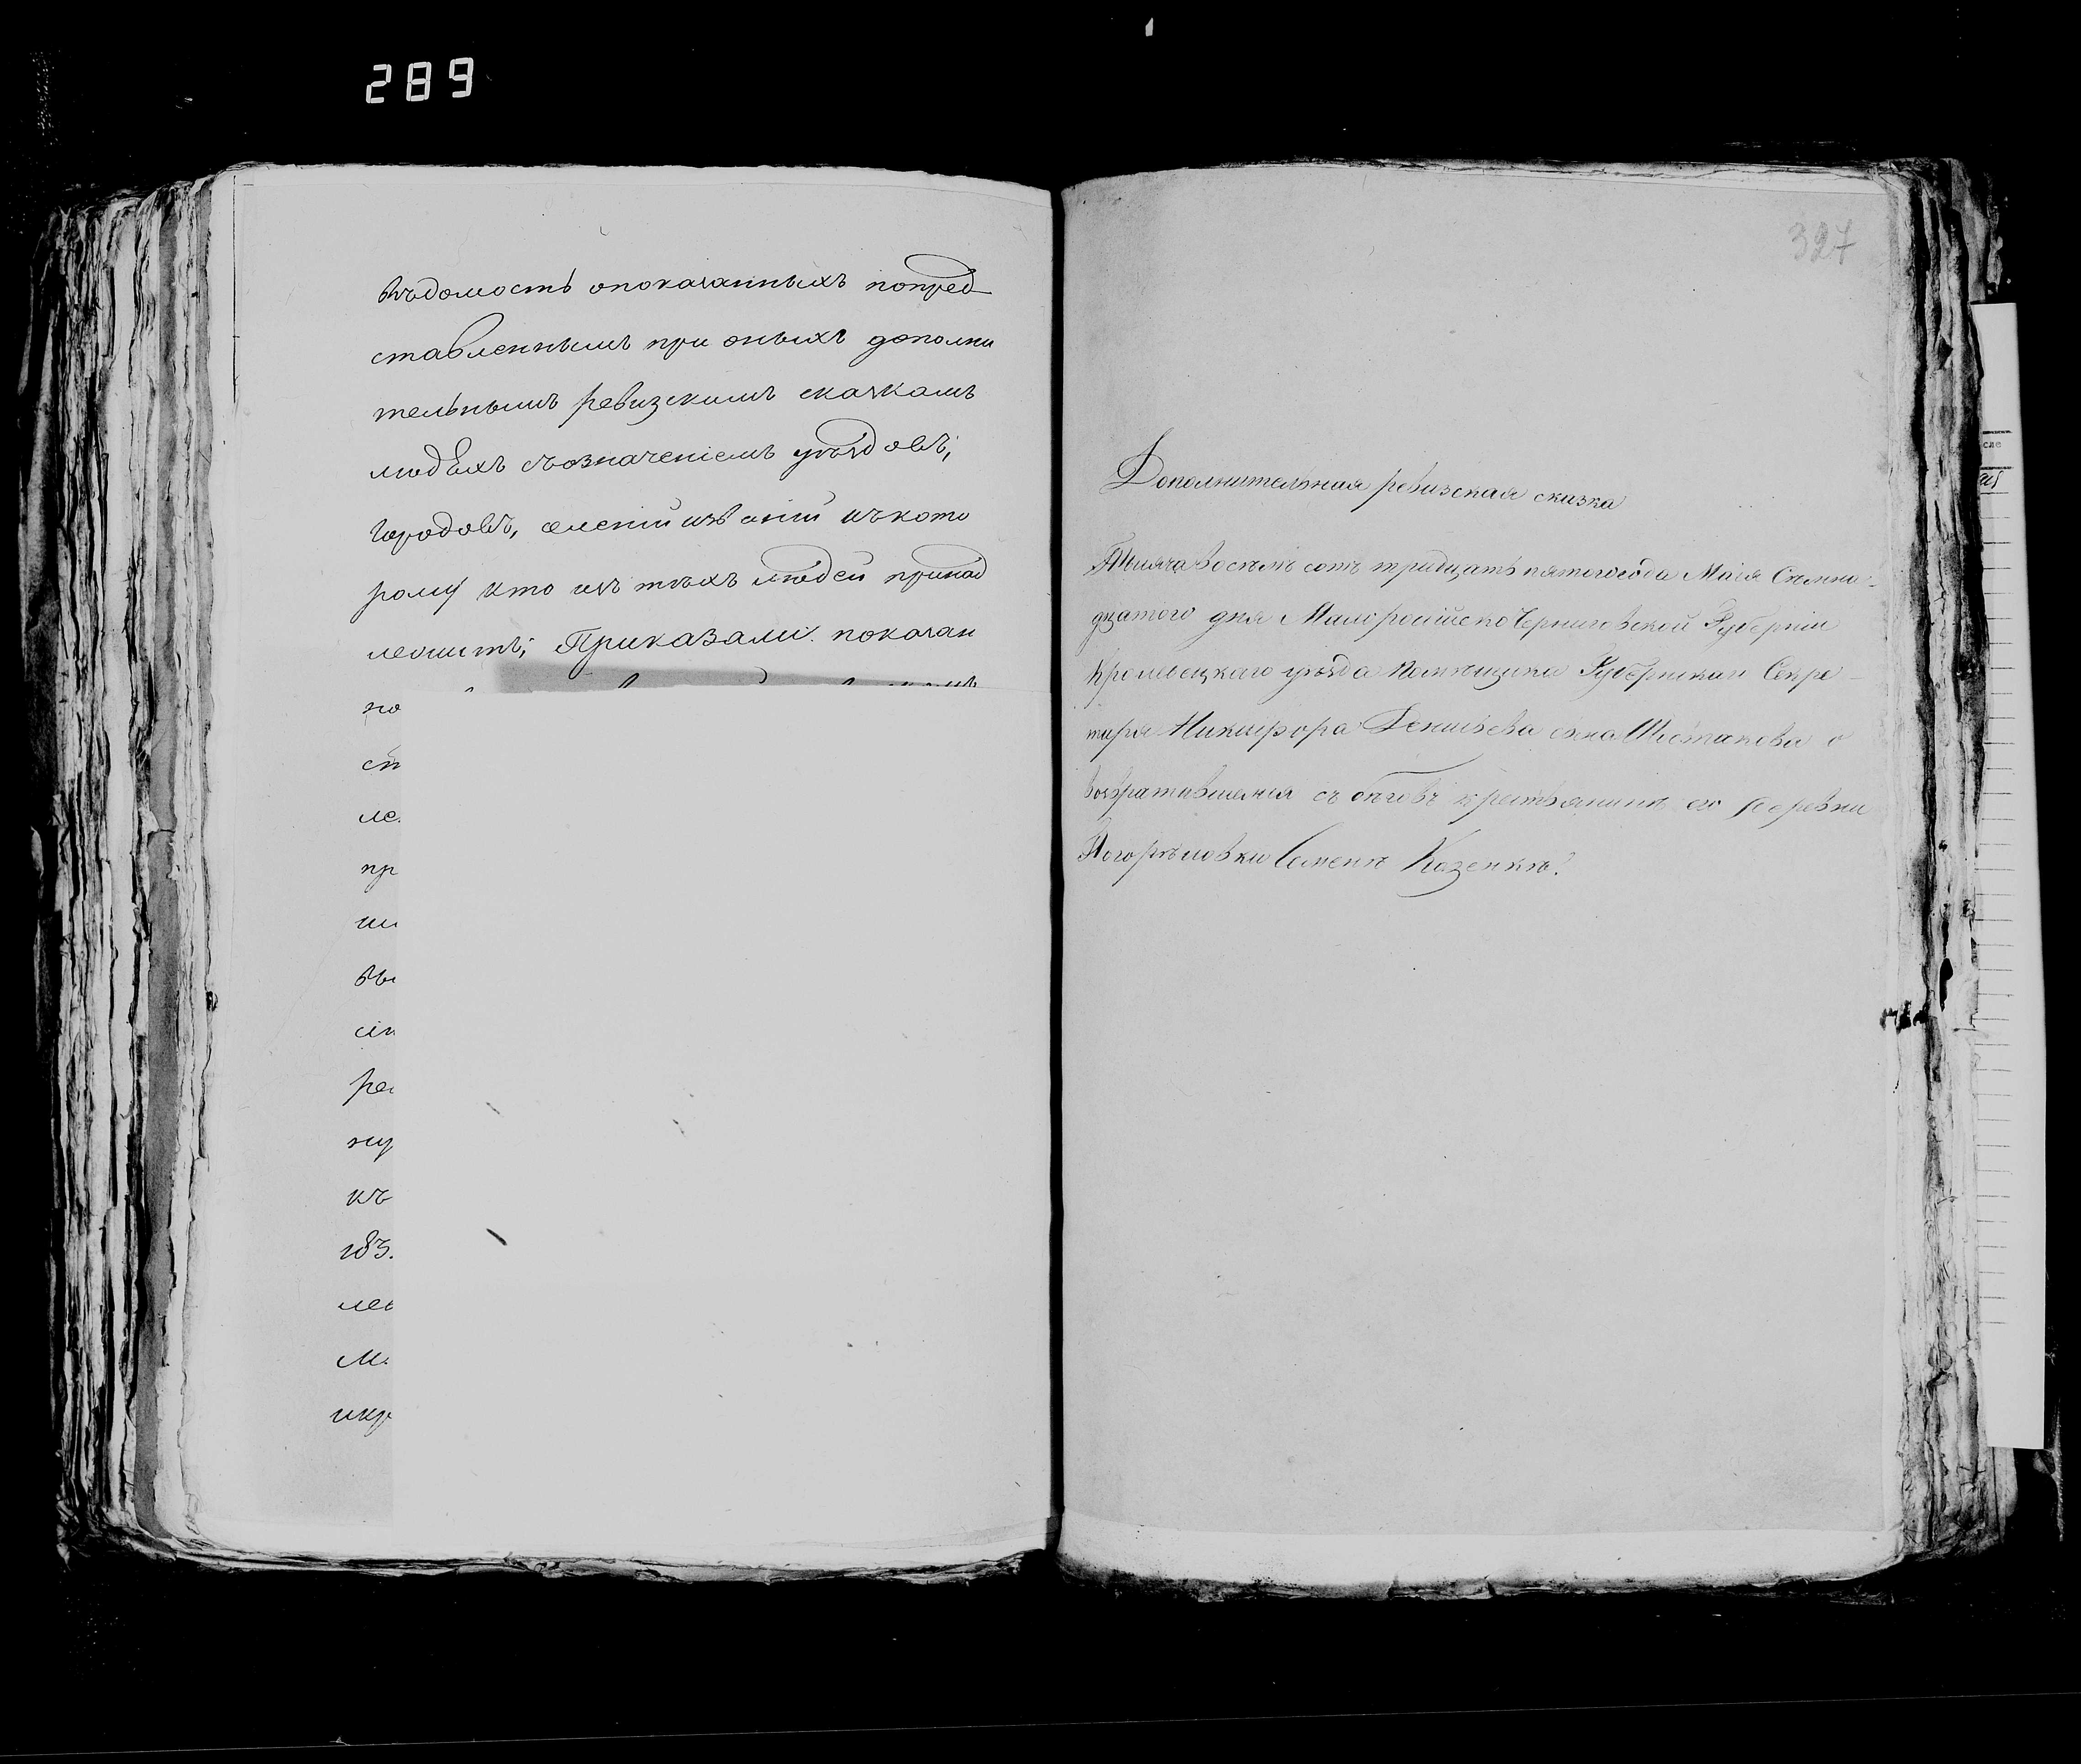 289
вѣдомость опоказанныхъ попред
ставленнымъ при оныхъ дополни
тельнымъ ревизскимъ сказкамъ
людѣхъ съозначеніемъ уѣздовъ,
городовъ, селеній изваній икъкото
рому кто изъ тѣхъ людей принад
лежитъ; Приказали: показан
но
сп
ле
пр
вы
сін
рев
ну
къ
183
лев
М.
икр
327
Дополнительная ревизская сказка
Тысяча восемъ сотъ тридцать пятого года Маія Семна-
дцатого дня Малоросійско Черниговской Губерніи
Кролевецкаго уѣзда помѣщика Губернскаго Секре-
таря Никифора Леонтьева сына Шестакова о
возвратившемся съ бѣговъ крестьянинѣ его деревни
Погорѣловки Семенѣ Казенкѣ.
сле